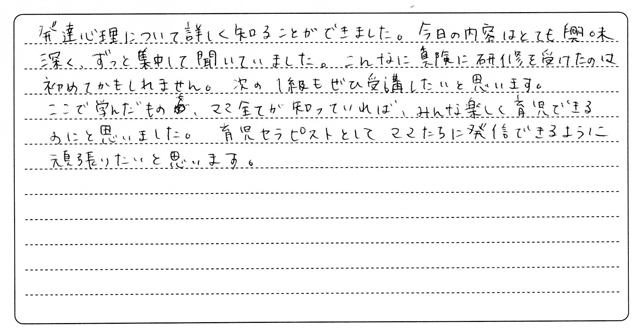 発達心理について詳しく知ることができました。今日の内容はとても興味
深く、ずっと集中して聞いていました。こんなに真険に研修を受けたのは
初めてかもしれません。次の1級もぜひ受講したいと思います。
ここで学んだもの、ママ全てが知っていれば、みんな楽しく育児できる
のにと思いました。育児セラピストとしてママたちに発信できるように
頑張りたいと思います。